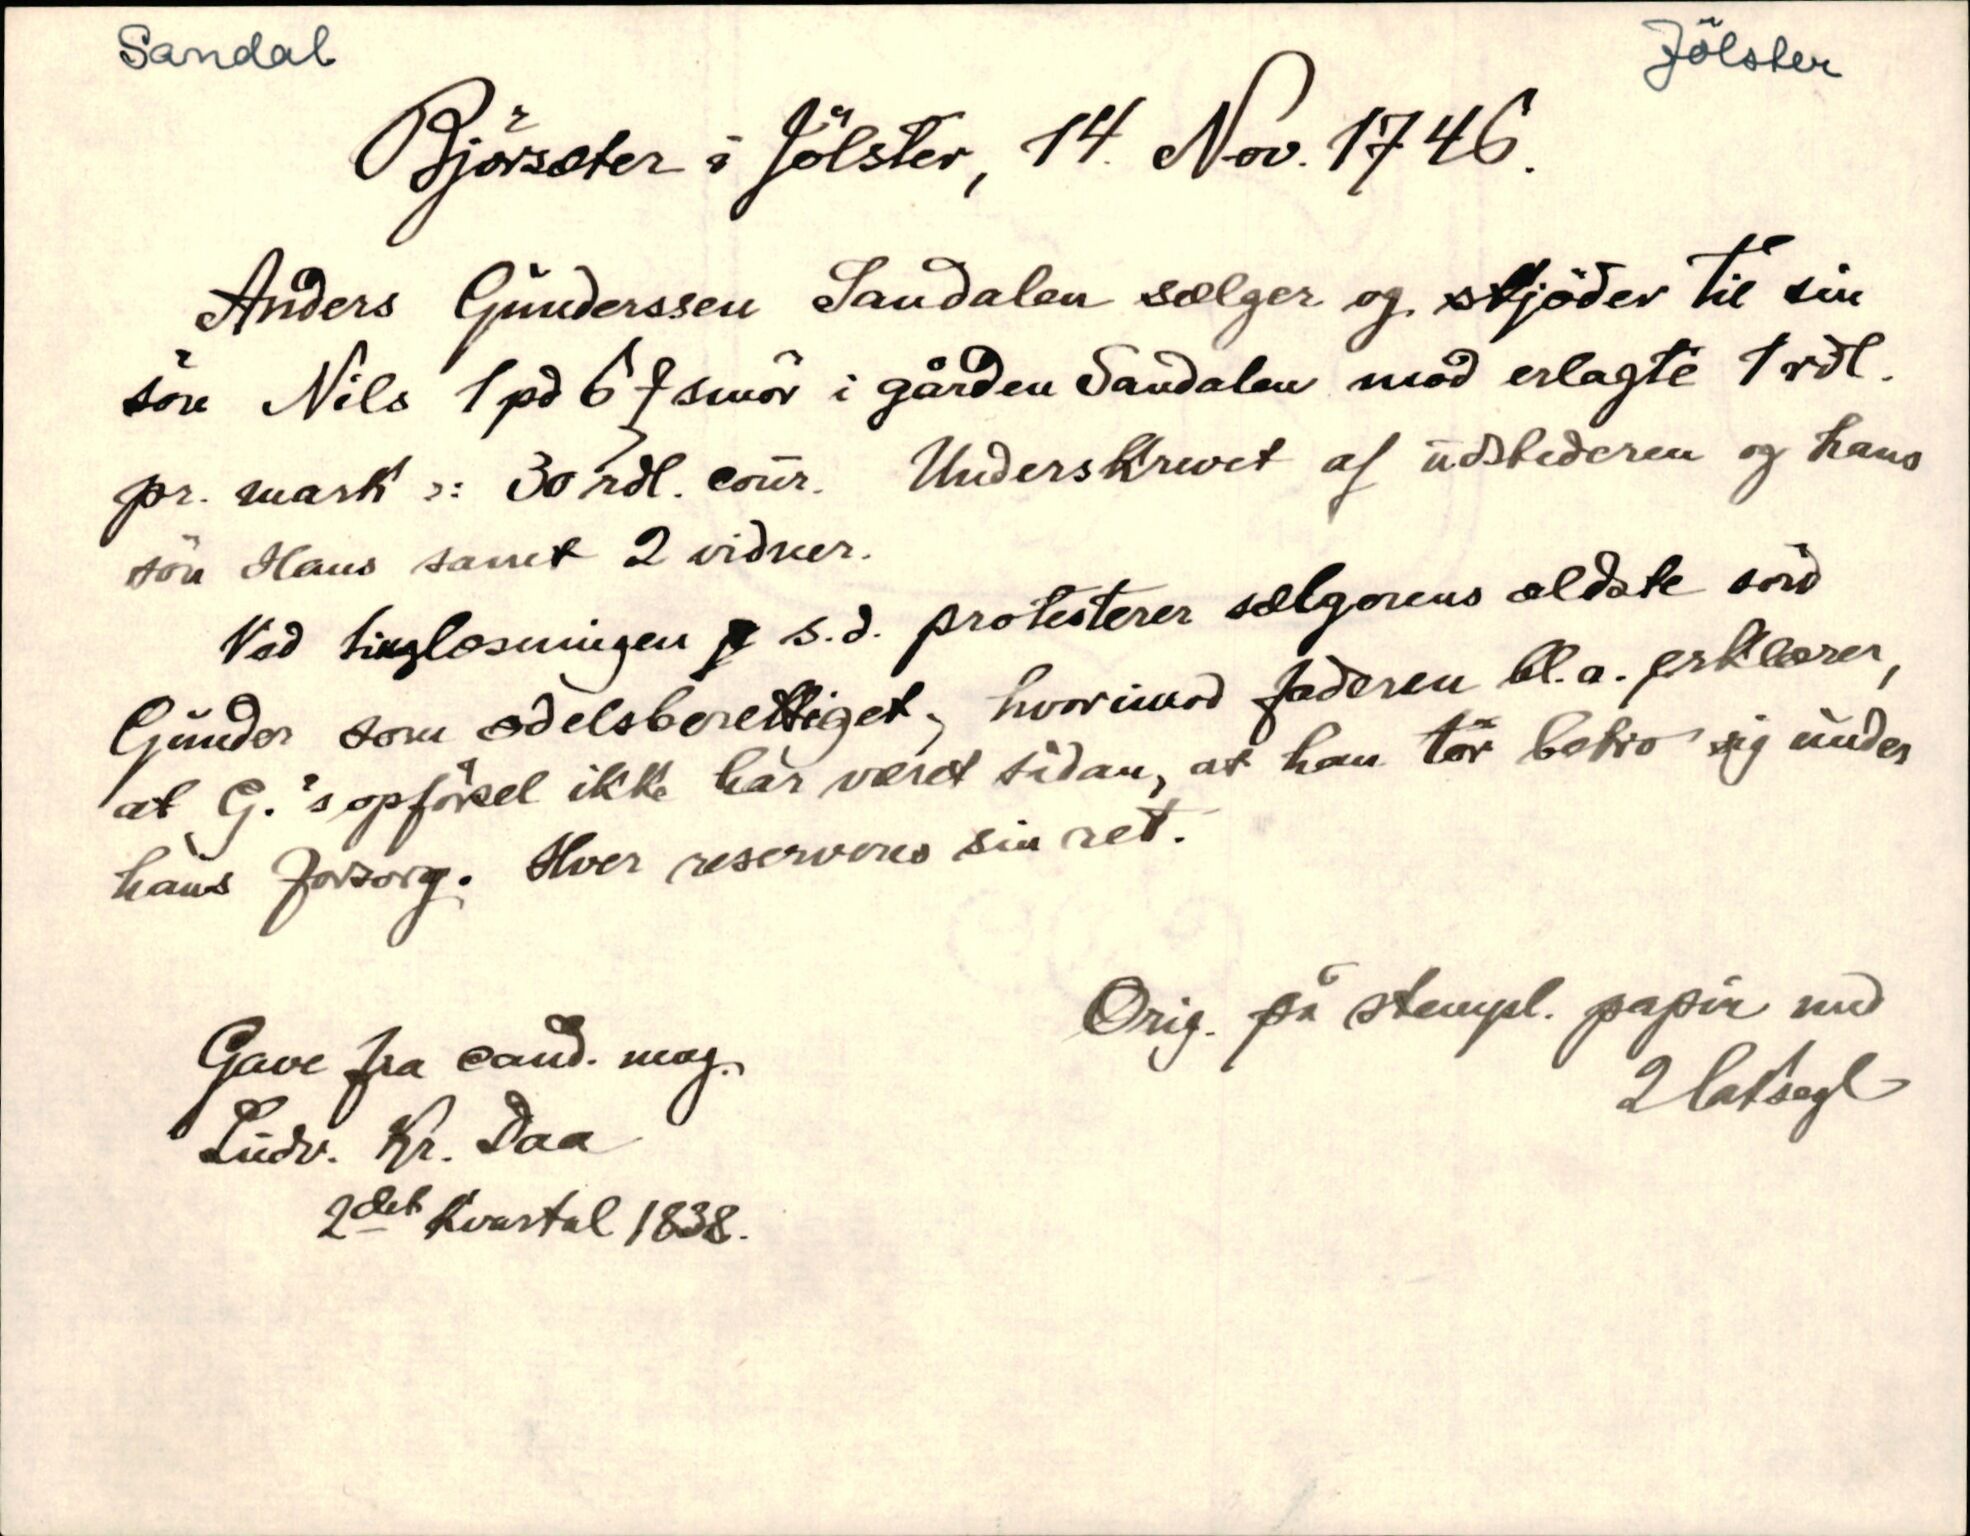 Sandal
Jölster
Björsæter i Jölster, 14. Nov. 1746.
Anders Gunderssen Sandalen sælger og skjöder til sin
sön Nils 1 pd 6 ƒ smör i gården Sandalen mod erlagte 1 rdl.
pr. mark ɔ: 30 rdl. cour. Underskrevet af udstederen og hans
sön Hans samt 2 vidner.
Ved tinglæsningen s. d. protesterer sælgerens ældste sön
Gunder som odelsberettiget, hvorimod faderen bl. a. erklærer,
at G.'s opförsel ikke har været sådan, at han tör betro sig under
hans forsorg. Hver reserveres sin ret.
Orig. på stempl. papir med
2 laksegl
Gave fra cand. mag.
Ludv. Kr. Daa
2det kvartal 1838.